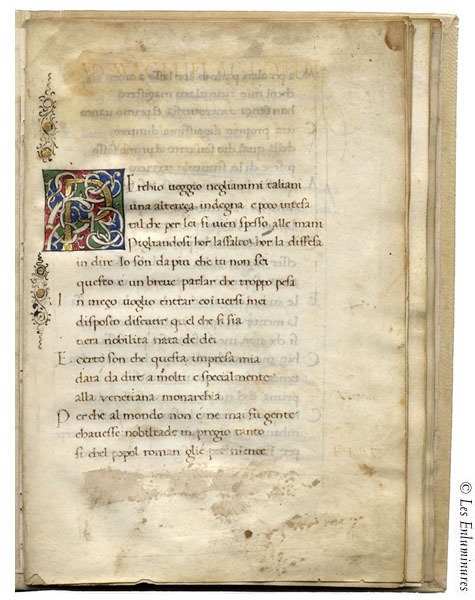 Perchio veggio neglianimi taliani
una alterεza indegna e poco intesa
tal che per lei si vien spesso alle mani
Pigliandosi hor lassalto hor la diffesa
in dire Io son da piu che tu non sei
questo e un breve parlar che troppo pesa
In mezo voglio entrar coi versi mei
disposto discutir quel che si sia
vera nobilita nata de dei
E certo son che questa impresa mia
dara da dire a molti e specialmente
alla venetiana monarchia
Perche al mondo non e ne mai fu gente
chavesse nobiltade in pregio tanto
si chel popol roman glie per niente
© Les Enluminures